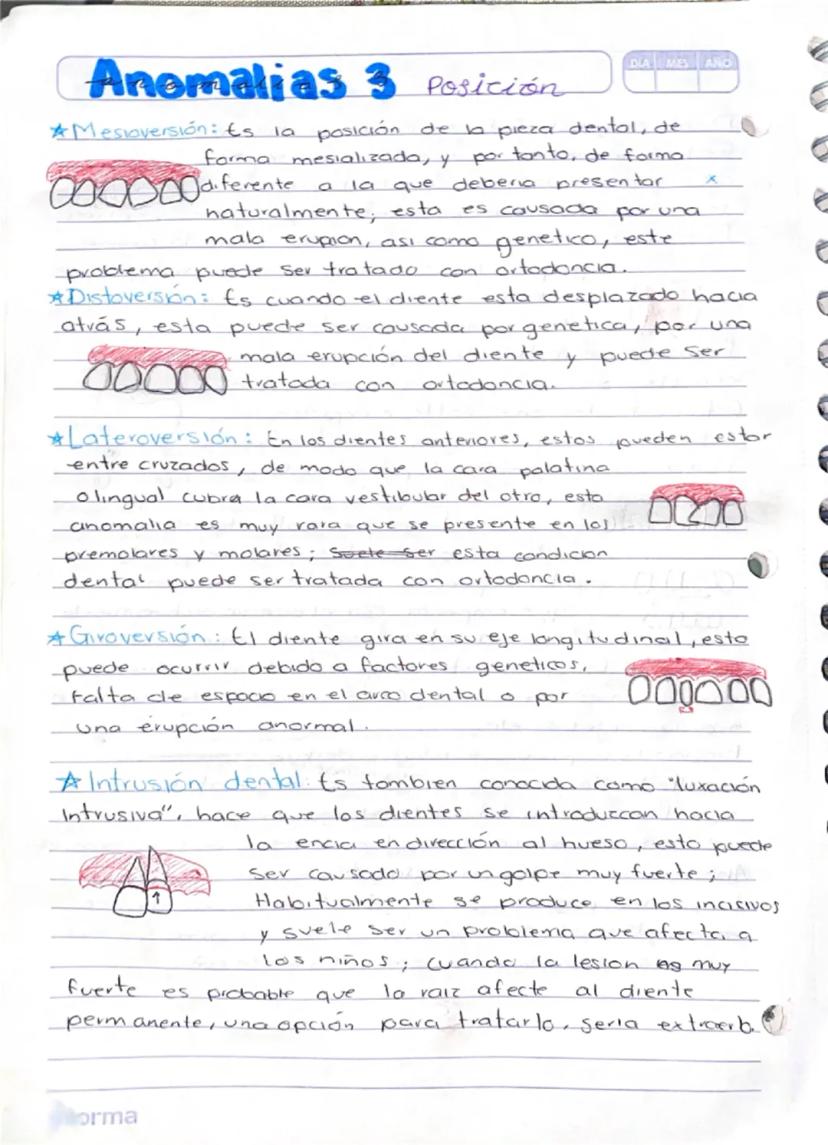 Anomalias 3 Posición
DIA MES AÑO
Mesioversión: Es la posición de la pieza dental, de
forma mesializada, y por tanto, de forma
diferente a la que deberia presentar
naturalmente, esta es causada por una
mala erupion, asi como genetico, este
problema puede ser tratado con ortodoncia.
Distoversión: Es cuando el diente esta desplazado hacia
atrás, esta puede ser causada por genetica, por una
mala erupción del diente y puede ser
tratada con ortodoncia.
Lateroversión: En los dientes anteriores, estos pueden estar
entre cruzados, de modo que la cara palatina
o lingual cubra la cara vestibular del otro, esta
anomalia es muy rara que se presente en los
premolares y molares; Suele ser esta condicion
dental puede ser tratada con ortodoncia.
Giroversión: El diente gira en su eje longitudinal, esto
puede ocurrir debido a factores geneticos,
Falta de espacio en el arco dental o por
una erupción anormal.
Intrusión dental: Es tambien conocida como "luxación
Intrusiva", hace que los dientes se introduzcan hacia
la encia en dirección al hueso, esto puede
ser causado por un golpe muy fuerte;
Habitualmente se produce en los incisivos
y suele ser un problema que afecta a
los niños; cuando la lesion es muy
fuerte es probable que la raiz afecte al diente
permanente, una opción para tratarlo, seria extraerlo.
norma